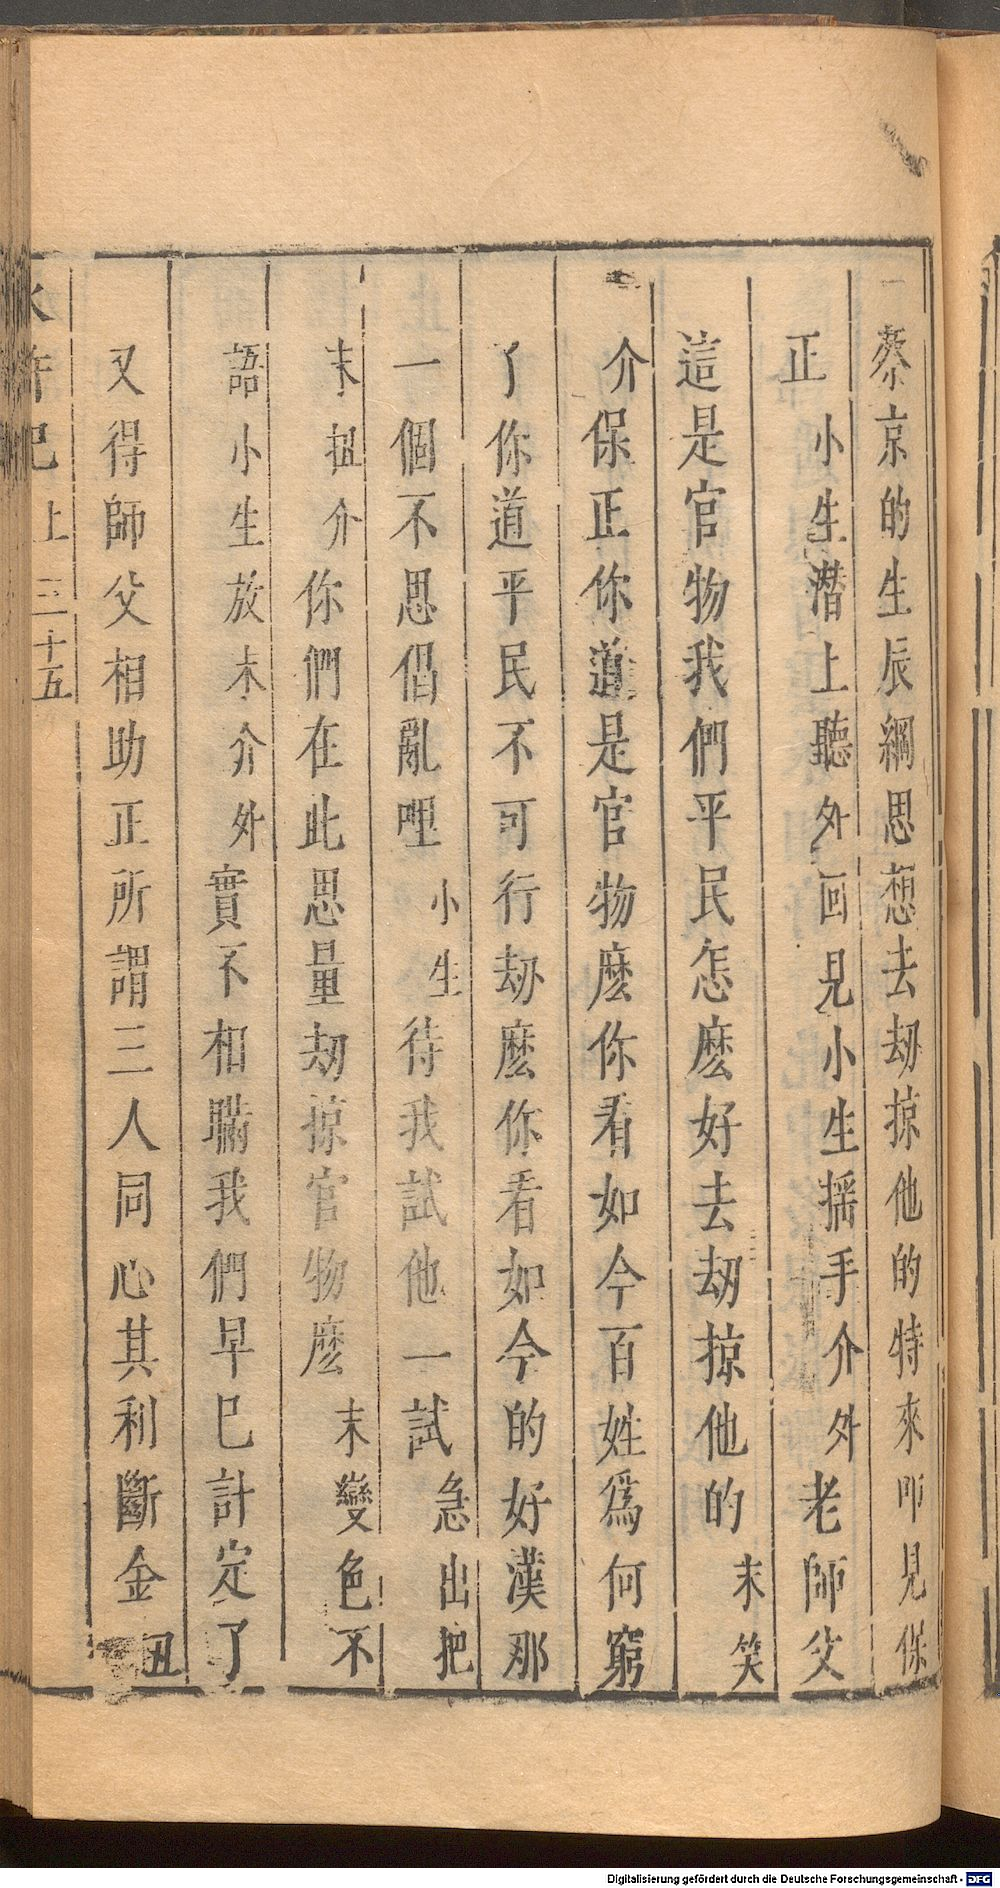 蔡京的生辰綱思想去刼掠他的特來叩見保
正小生潜上聽外回見小生摇手介外老師父
這是官物我們平民怎麽好去刼掠他的末笑
介保正你道是官物麽你看如今百姓爲何窮
了你道平民不可行刼麽你看如今的好漢那
一個不思倡亂哩小生待我試他一試急出把
末扭介你們在此思量刼掠官物麽末變色不
語小生放末介外實不相瞞我們早已計定了
又得師父相助正所謂三人同心其利斷金丑
水滸記上三十五
Digitalisierung gefördert durch die Deutsche Forschungsgemeinschaft - DFG